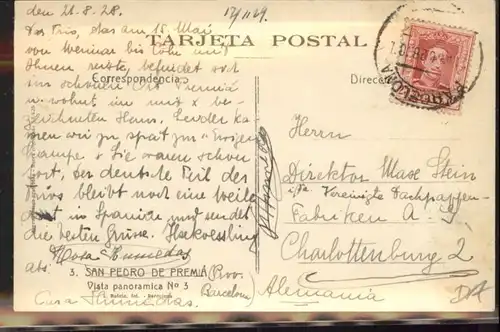 den 21.8.28.
12/11 29.
Das Trio, das am 15. Mai
TARJETA POSTAL
von Weimar bis Köln mit
Ihnen reiste, befindet sich
Correspondencia
Direcc
im schönen Ort Premiá
u. wohnt im mit x be-
zeichneten Haus. Leider ka-
men wir zu spät zur "
. Sie waren schon
fort, der deutsche Teil des
Trios bleibt noch eine Weile
dort in Spanien und sendet
die besten Grüsse.
Rosa
3. SAN PEDRO DE PREMIÁ (Prov.
Vista panoramica Nº 3
Barcelona)
abs:
Casa
BARCELONA
Herrn
Direktor Max Stein
i/Fa. Vereinigte Dachpappen-
Fabriken A. G
Charlottenburg 2
Alemania